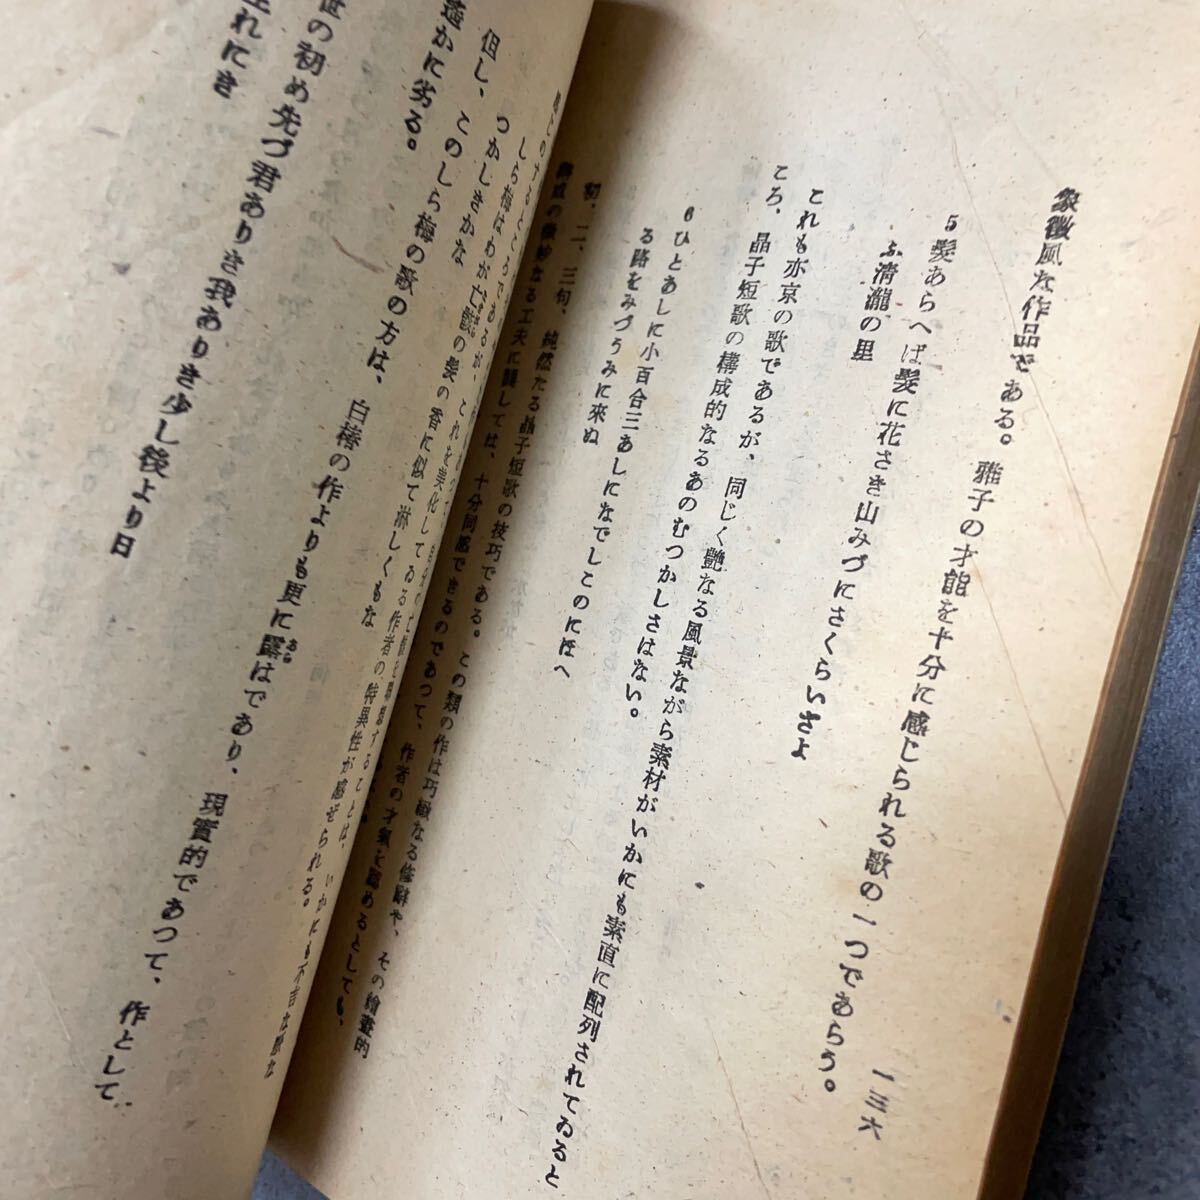 象徴風な作品である。雅子の才能を十分に感じられる歌の一つであらう。
一三六
5 髪あらへば髪に花さき山みづにさくらいさよ
ふ清瀧の里
これも亦京の歌であるが、同じく艶なる風景ながら素材がいかにも素直に配列されてゐると
ころ、晶子短歌の構成的なるあのむつかしさはない。
6 ひとあしに小百合三あしになでしこのにほへ
る路をみづうみに來ぬ
初、二、三句、純然たる晶子短歌の技巧である。この類の作は巧緻なる修辭や、その繪畫的
構成の微妙なる工夫に關しては、十分同感できるのであつて、作者の才氣を認めるとしても、
しら梅はわが亡骸の髪の香に似て淋しくもな
つかしきかな
但し、このしら梅の歌の方は、白椿の作よりも更に露はであり、現實的であつて、作として
遙かに劣る。
世の初め先づ君ありき我ありき少し後より日
生れにき